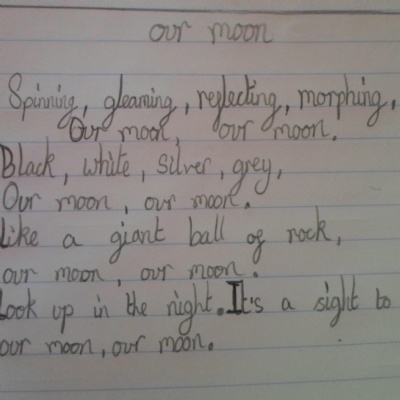 our moon
Spinning, gleaming, reflecting, morphing,
Our moon, our moon.
Black, white, silver, grey,
Our moon, our moon.
Like a giant ball of rock,
our moon, our moon.
Look up in the night. It's a sight to
our moon, our moon.